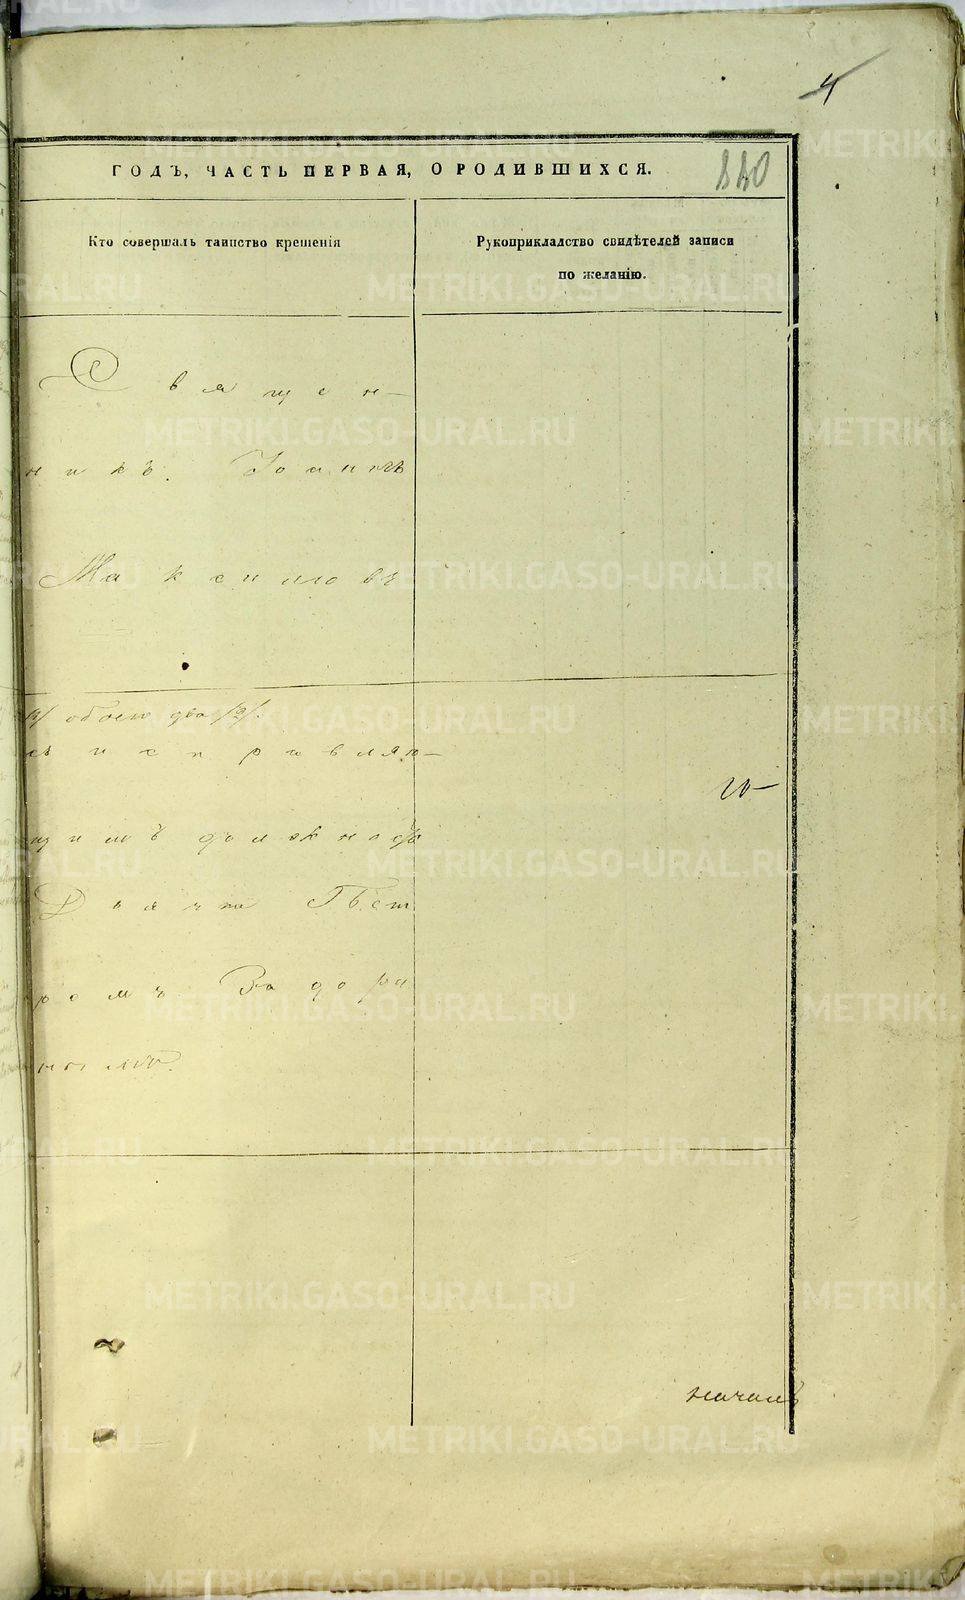 4
ГОДЪ, ЧАСТЬ ПЕРВАЯ, О РОДИВШИХСЯ.
Кто совершалъ таинство крещенія
Рукоприкладство свидѣтелей записи
по желанію.
Священ-
никъ Іоаннъ
Максимовъ
обоего два /2/.
съ исправляю-
щимъ должность
Дьячка Пет
ромъ Задори
нымъ.
началѣ
METRIKI.GASO-URAL.RU